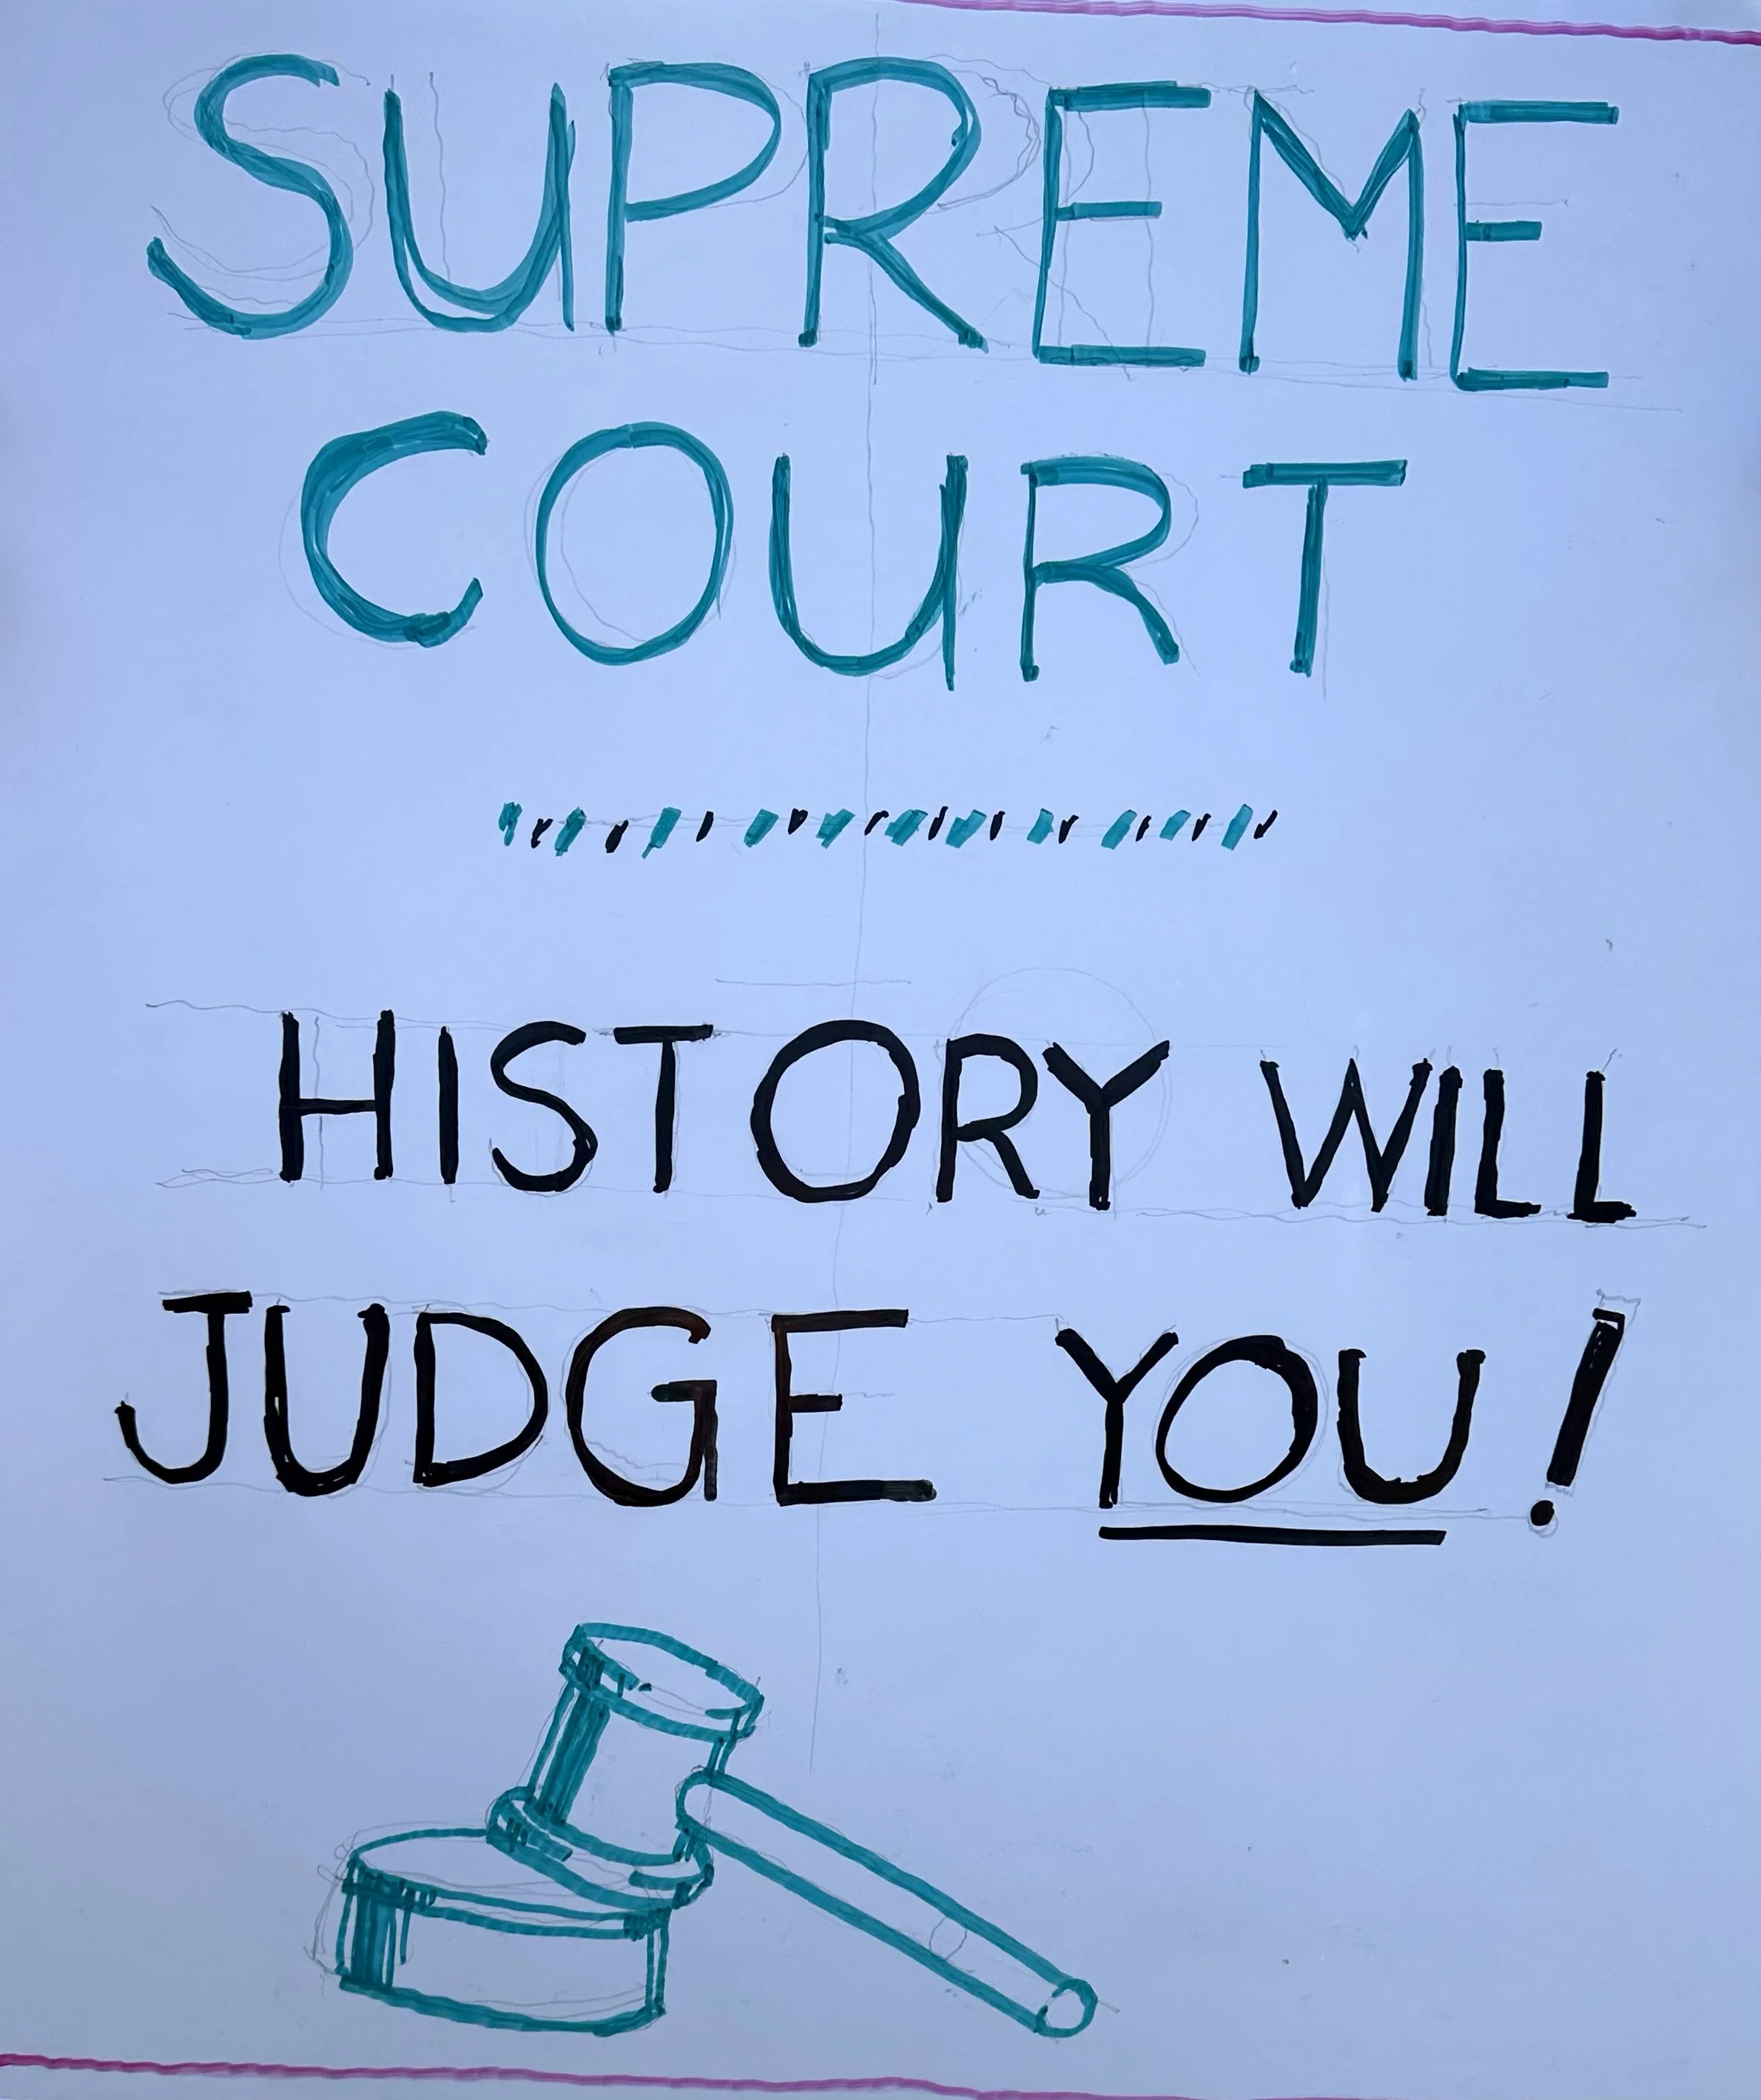 SUPREME
COURT
HISTORY WILL
JUDGE YOU!